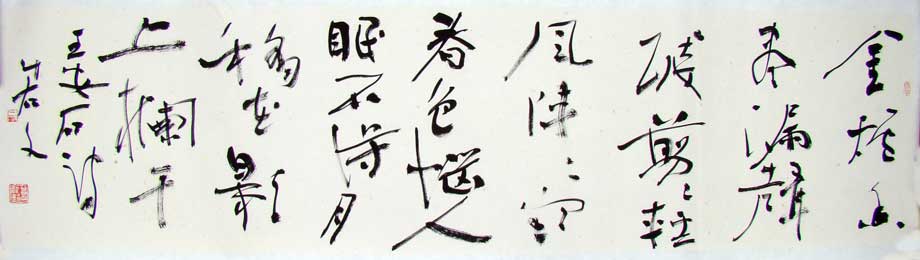 金爐香
盡漏聲
殘剪々輕
風陣々寒
春色惱人
眠不得月
移花影
上欄干
王安石詩